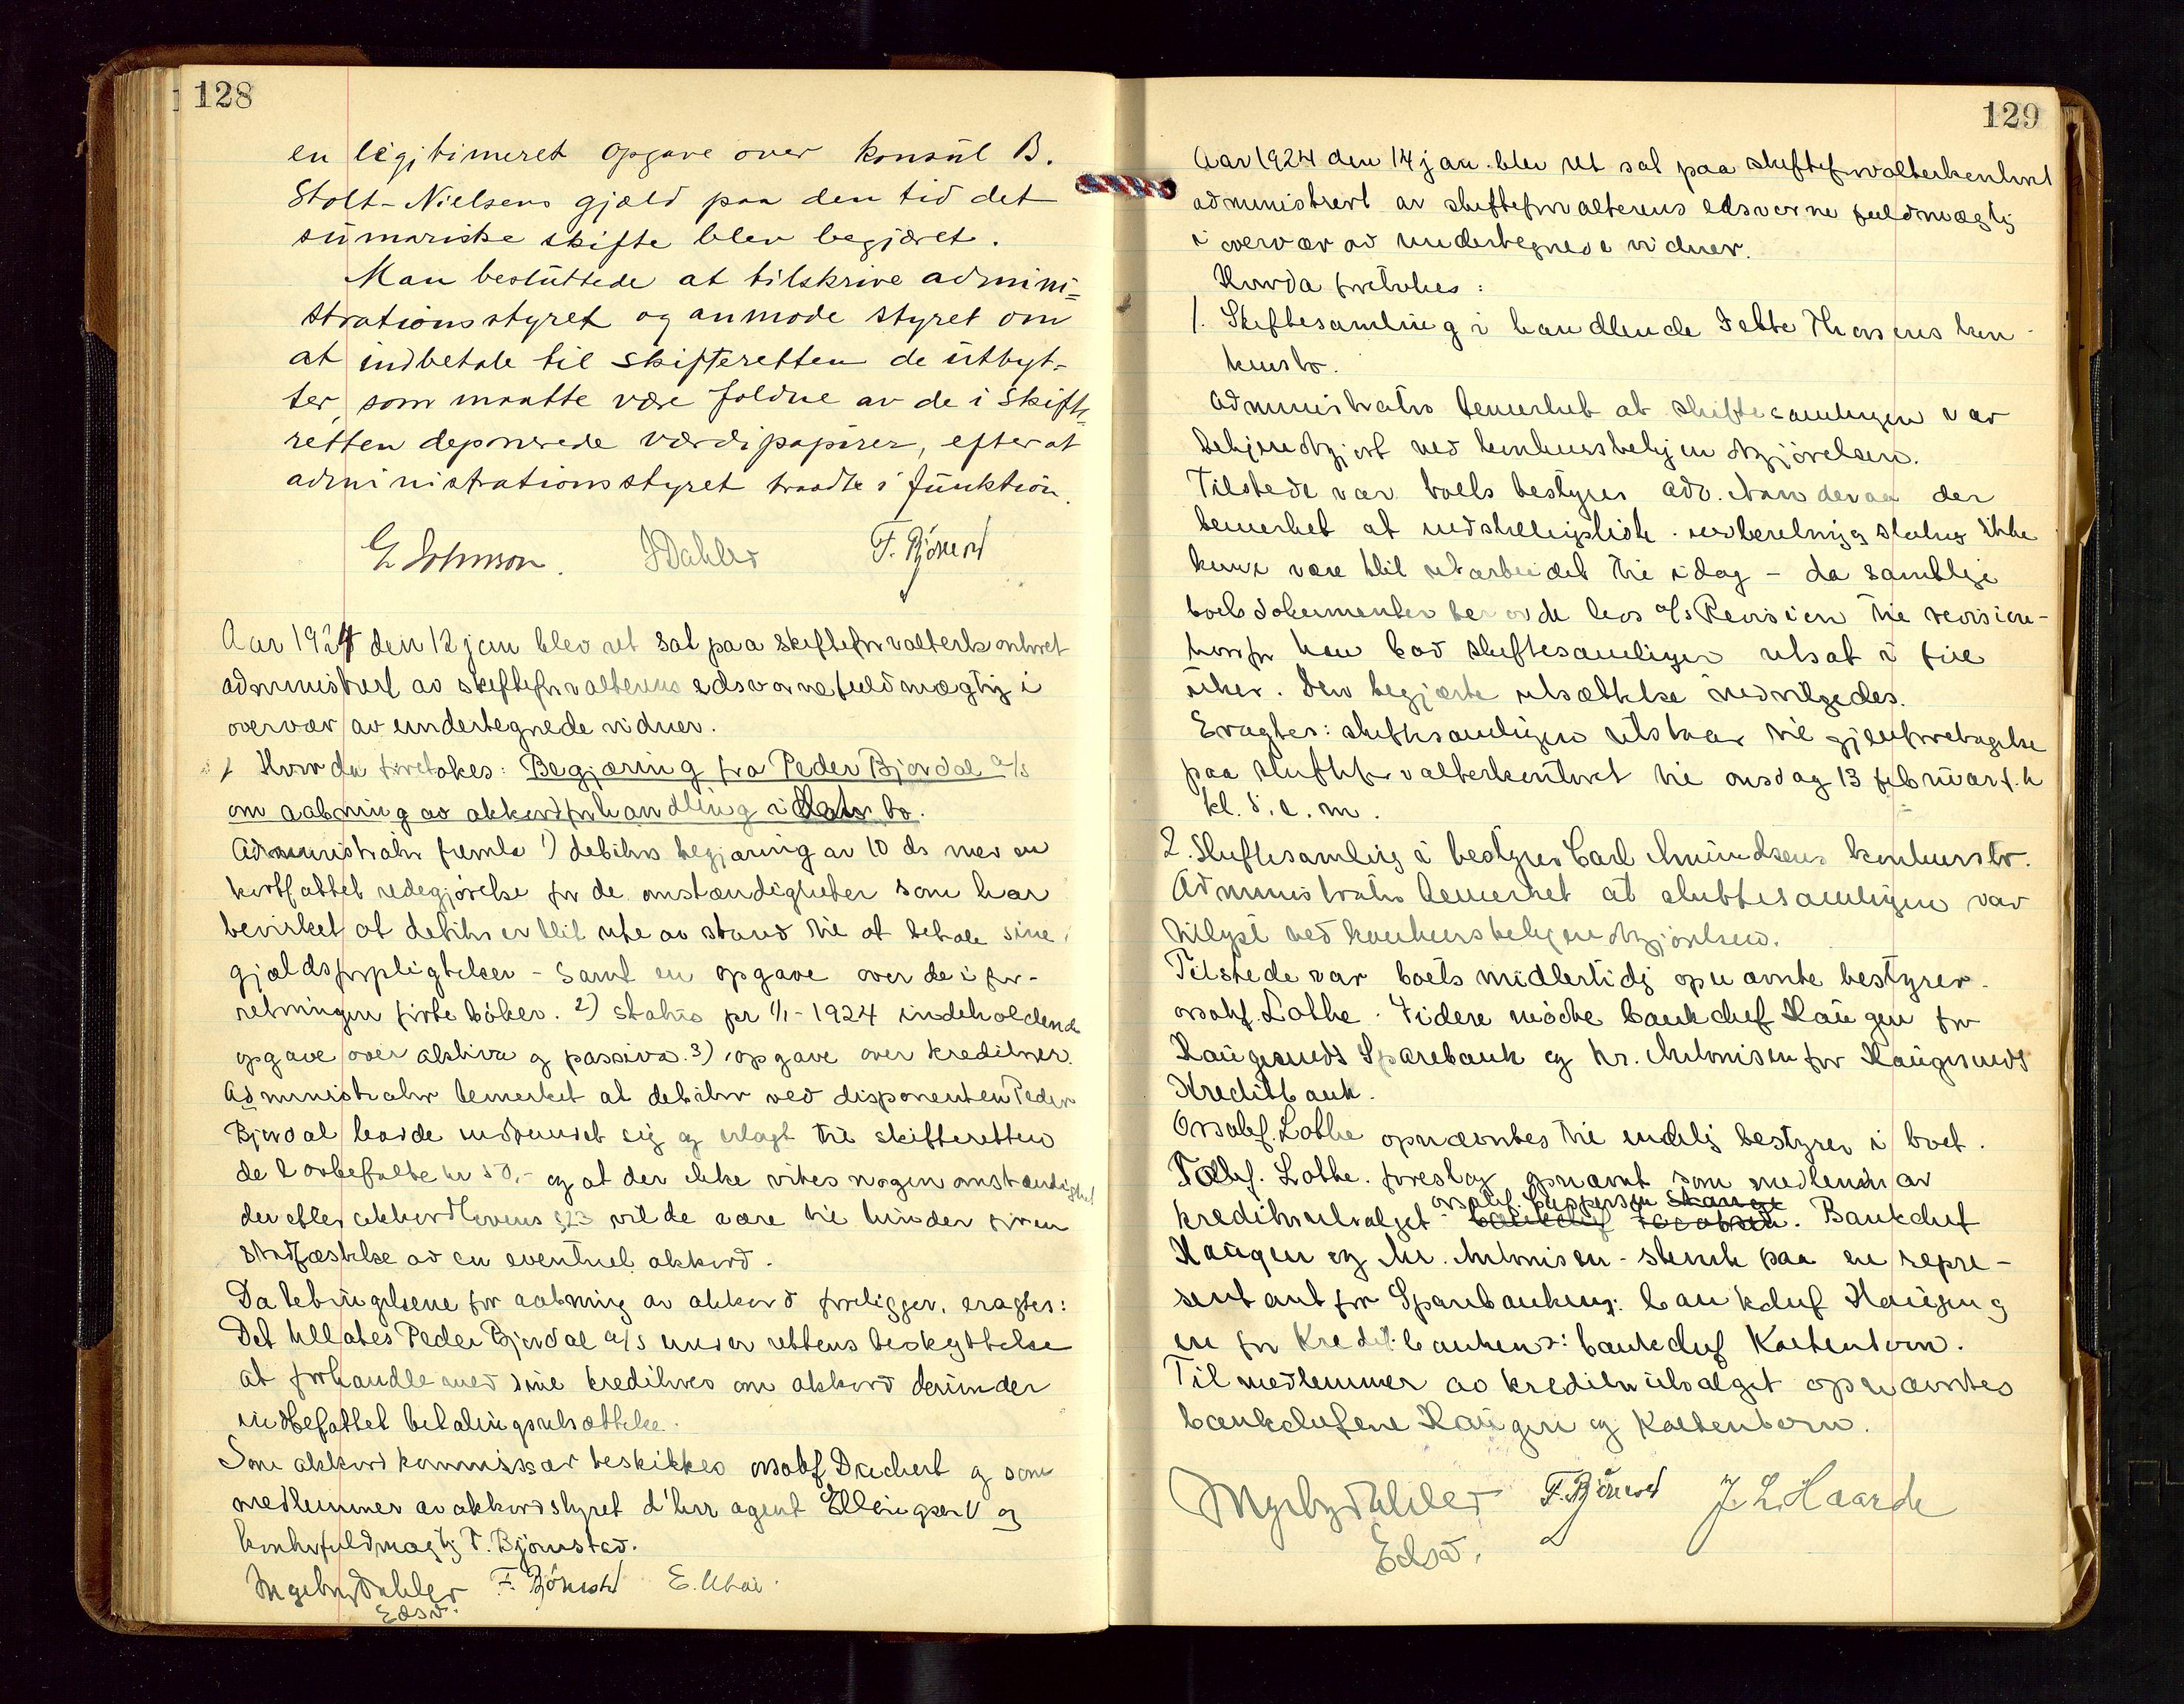 128
en legitimeret Opgave over Konsul B.
Stolt-Nielsens gjæld paa den tid det
sumariske skifte blev begjæret.
Man besluttede at tilskrive admini-
strationsstyret og anmode styret om
at indbetale til Skifteretten de utbyt-
ter, som maatte være faldne av de i Skifte-
retten deponerede værdipapirer, efter at
administrationsstyret traadte i funktion.
E Johnson. J Dahler F. Bjørnstd
Aar 1924 den 12 jan blev ret sat paa skifteforvalterkontoret
administrert av skifteforvalterens edsvorne fuldmægtig i
overvær av undertegnede vidner.
1 Hvorda foretokes: Begjæring fra Peder Bjordal a/s
om aabning av akkordforhandling i bo.
Administrator fremla 1) debitors begjæring av 10 ds med en
kortfattet redegjørelse for de omstændigheter som har
bevirket at debitor er blit ute av stand til at betale sine
gjældsforpligtelser - samt en opgave over de i for-
retningen førte bøker. 2) status pr 1/1-1924 indeholdende
opgave over aktiva og passiva. 3) opgave over kreditorer.
Administrator bemerket at debitor ved disponenten Peder
Bjordal havde indfundet sig og erlagt til skifteretten
de lovbefalte kr 50.- og at der ikke vites nogen omstændighet
der efter akkordlovens §23 vilde være til hinder for en
stadfæstelse av en eventuel akkord.
Da betingelsene for aabning av akkord foreligger, eragtes:
Det tillates Peder Bjordal a/s under rettens beskyttelse
at forhandle med sine kreditorer om akkord derunder
indbefattet betalingsutsættelse.
Som akkordkommissær beskikkes orsakf. Dachert og som
medlemmer av akkordstyret d'herr agent Ellingsen og
kontorfuldmægtig F. Bjørnstad.
Ingeborg Dahler F. Bjørnstd E.
Edsv.
129
Aar 1924 den 14 jan. blev ret sat paa skifteforvalterkontoret
administrert av skifteforvalterens edsvorne fuldmægtig
i overvær av undertegnede vidner.
Hvorda foretokes:
1. Skiftesamling i handlende Thorsens kon-
kursbo.
Administrator bemerket at skiftesamlingen var
bekjendtgjort ved konkursbekjendtgjørelsen.
Tilstede var boets bestyrer adv. der
bemerket at indstillingsliste - indberetning og status ikke
kunne være blit utarbeidet til idag - da samtlige
boets dokumenter beroede hos a/s Revision til revision -
hvorfor han bad skiftesamlingen utsat i fire
uker. Den begjærte utsættelse indvilgedes.
Eragtes: skiftesamlingen utstaar til gjenforetagelse
paa skifteforvalterkontoret til onsdag 13 februar f.k
kl. 5. e. m.
2. Skiftesamling i bestyrer Carl Amundsens konkursbo.
Administrator bemerket at skiftesamlingen var
tillyst ved konkursbekjendtgjørelsen.
Tilstede var boets midlertidig opnævnte bestyrer
orsakf. Lothe. Videre møtte bankchef Haugen for
Haugesunds Sparebank og hr. Antonisen for Haugesunds
Kreditbank.
Orsakf. Lothe opnævntes til endelig bestyrer i boet.
Orsakf. Lothe. foreslog opnævnt som medlem av
orsakf. Caspersen
kreditorutvalget bankchef Jacobsen. Bankchef
Haugen og hr. Antonisen - stemte paa en repre-
sentant for Sparebanken: bankchef Haugen og
en for Kreditbanken: bankchef Kaltenborn.
Til medlemmer av kreditorutvalget opnævntes
bankchefene Haugen og Kaltenborn.
Ingeborg Dahler F. Bjørnstd J. L. Haarde
Edsv.